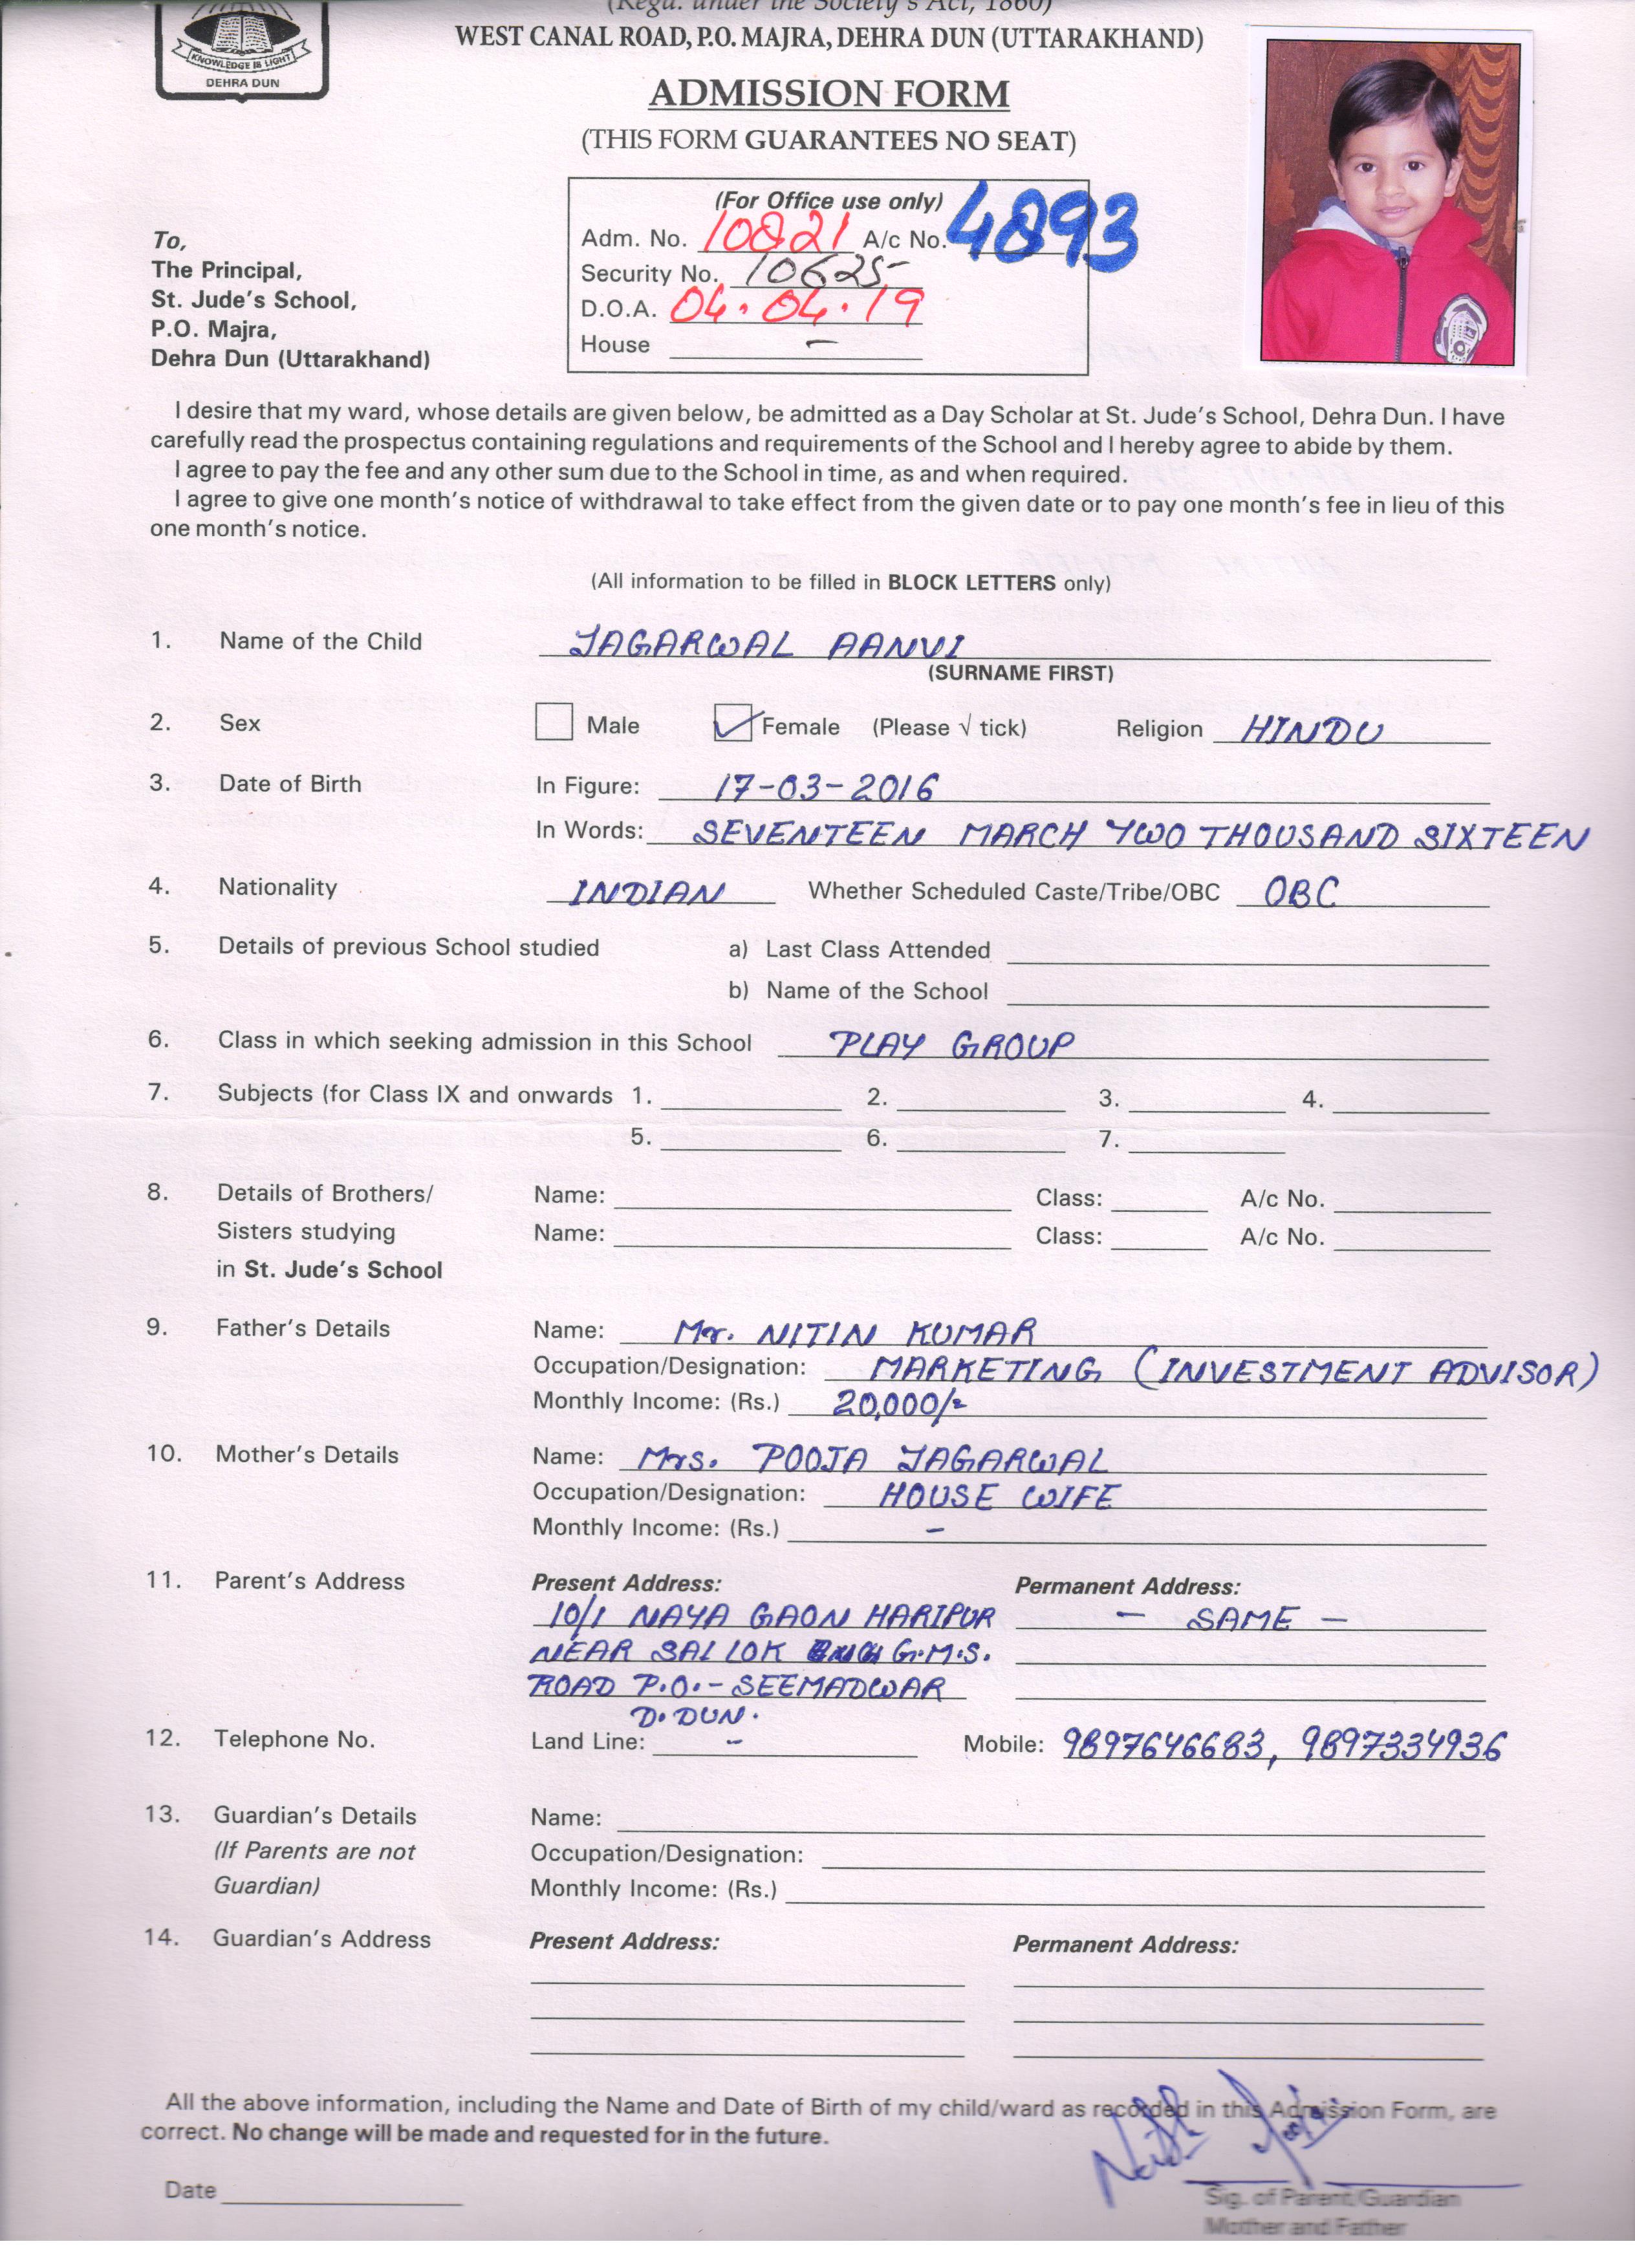 (Regd. under the Society's Act, 1860)
WEST CANAL ROAD, P.O. MAJRA, DEHRA DUN (UTTARAKHAND)
KNOWLEDGE IS LIGHT
DEHRA DUN
ADMISSION FORM
(THIS FORM GUARANTEES NO SEAT)
(For Office use only)
Adm. No. 10821 A/c No. 4893
Security No. 10625
D.O.A. 04.04.19
House -
To,
The Principal,
St. Jude's School,
P.O. Majra,
Dehra Dun (Uttarakhand)
I desire that my ward, whose details are given below, be admitted as a Day Scholar at St. Jude's School, Dehra Dun. I have
carefully read the prospectus containing regulations and requirements of the School and I hereby agree to abide by them.
I agree to pay the fee and any other sum due to the School in time, as and when required.
I agree to give one month's notice of withdrawal to take effect from the given date or to pay one month's fee in lieu of this
one month's notice.
(All information to be filled in BLOCK LETTERS only)
1. Name of the Child JAGARWAL AANVI
(SURNAME FIRST)
2. Sex Male ✓ Female (Please √ tick) Religion HINDU
3. Date of Birth In Figure: 17-03-2016
In Words: SEVENTEEN MARCH TWO THOUSAND SIXTEEN
4. Nationality INDIAN Whether Scheduled Caste/Tribe/OBC OBC
5. Details of previous School studied a) Last Class Attended
b) Name of the School
6. Class in which seeking admission in this School PLAY GROUP
7. Subjects (for Class IX and onwards 1. 2. 3. 4.
5. 6. 7.
8. Details of Brothers/ Name: Class: A/c No.
Sisters studying Name: Class: A/c No.
in St. Jude's School
9. Father's Details Name: Mr. NITIN KUMAR
Occupation/Designation: MARKETING (INVESTMENT ADVISOR)
Monthly Income: (Rs.) 20,000/=
10. Mother's Details Name: Mrs. POOJA JAGARWAL
Occupation/Designation: HOUSE WIFE
Monthly Income: (Rs.) -
11. Parent's Address Present Address: Permanent Address:
10/1 NAYA GAON HARIPUR - SAME -
NEAR SAI LOK G.M.S.
ROAD P.O.- SEEMADWAR
D. DUN.
12. Telephone No. Land Line: - Mobile: 9897646683, 9897334936
13. Guardian's Details Name:
(If Parents are not Occupation/Designation:
Guardian) Monthly Income: (Rs.)
14. Guardian's Address Present Address: Permanent Address:
All the above information, including the Name and Date of Birth of my child/ward as recorded in this Admission Form, are
correct. No change will be made and requested for in the future.
Date
Sig. of Parent/Guardian
Mother and Father